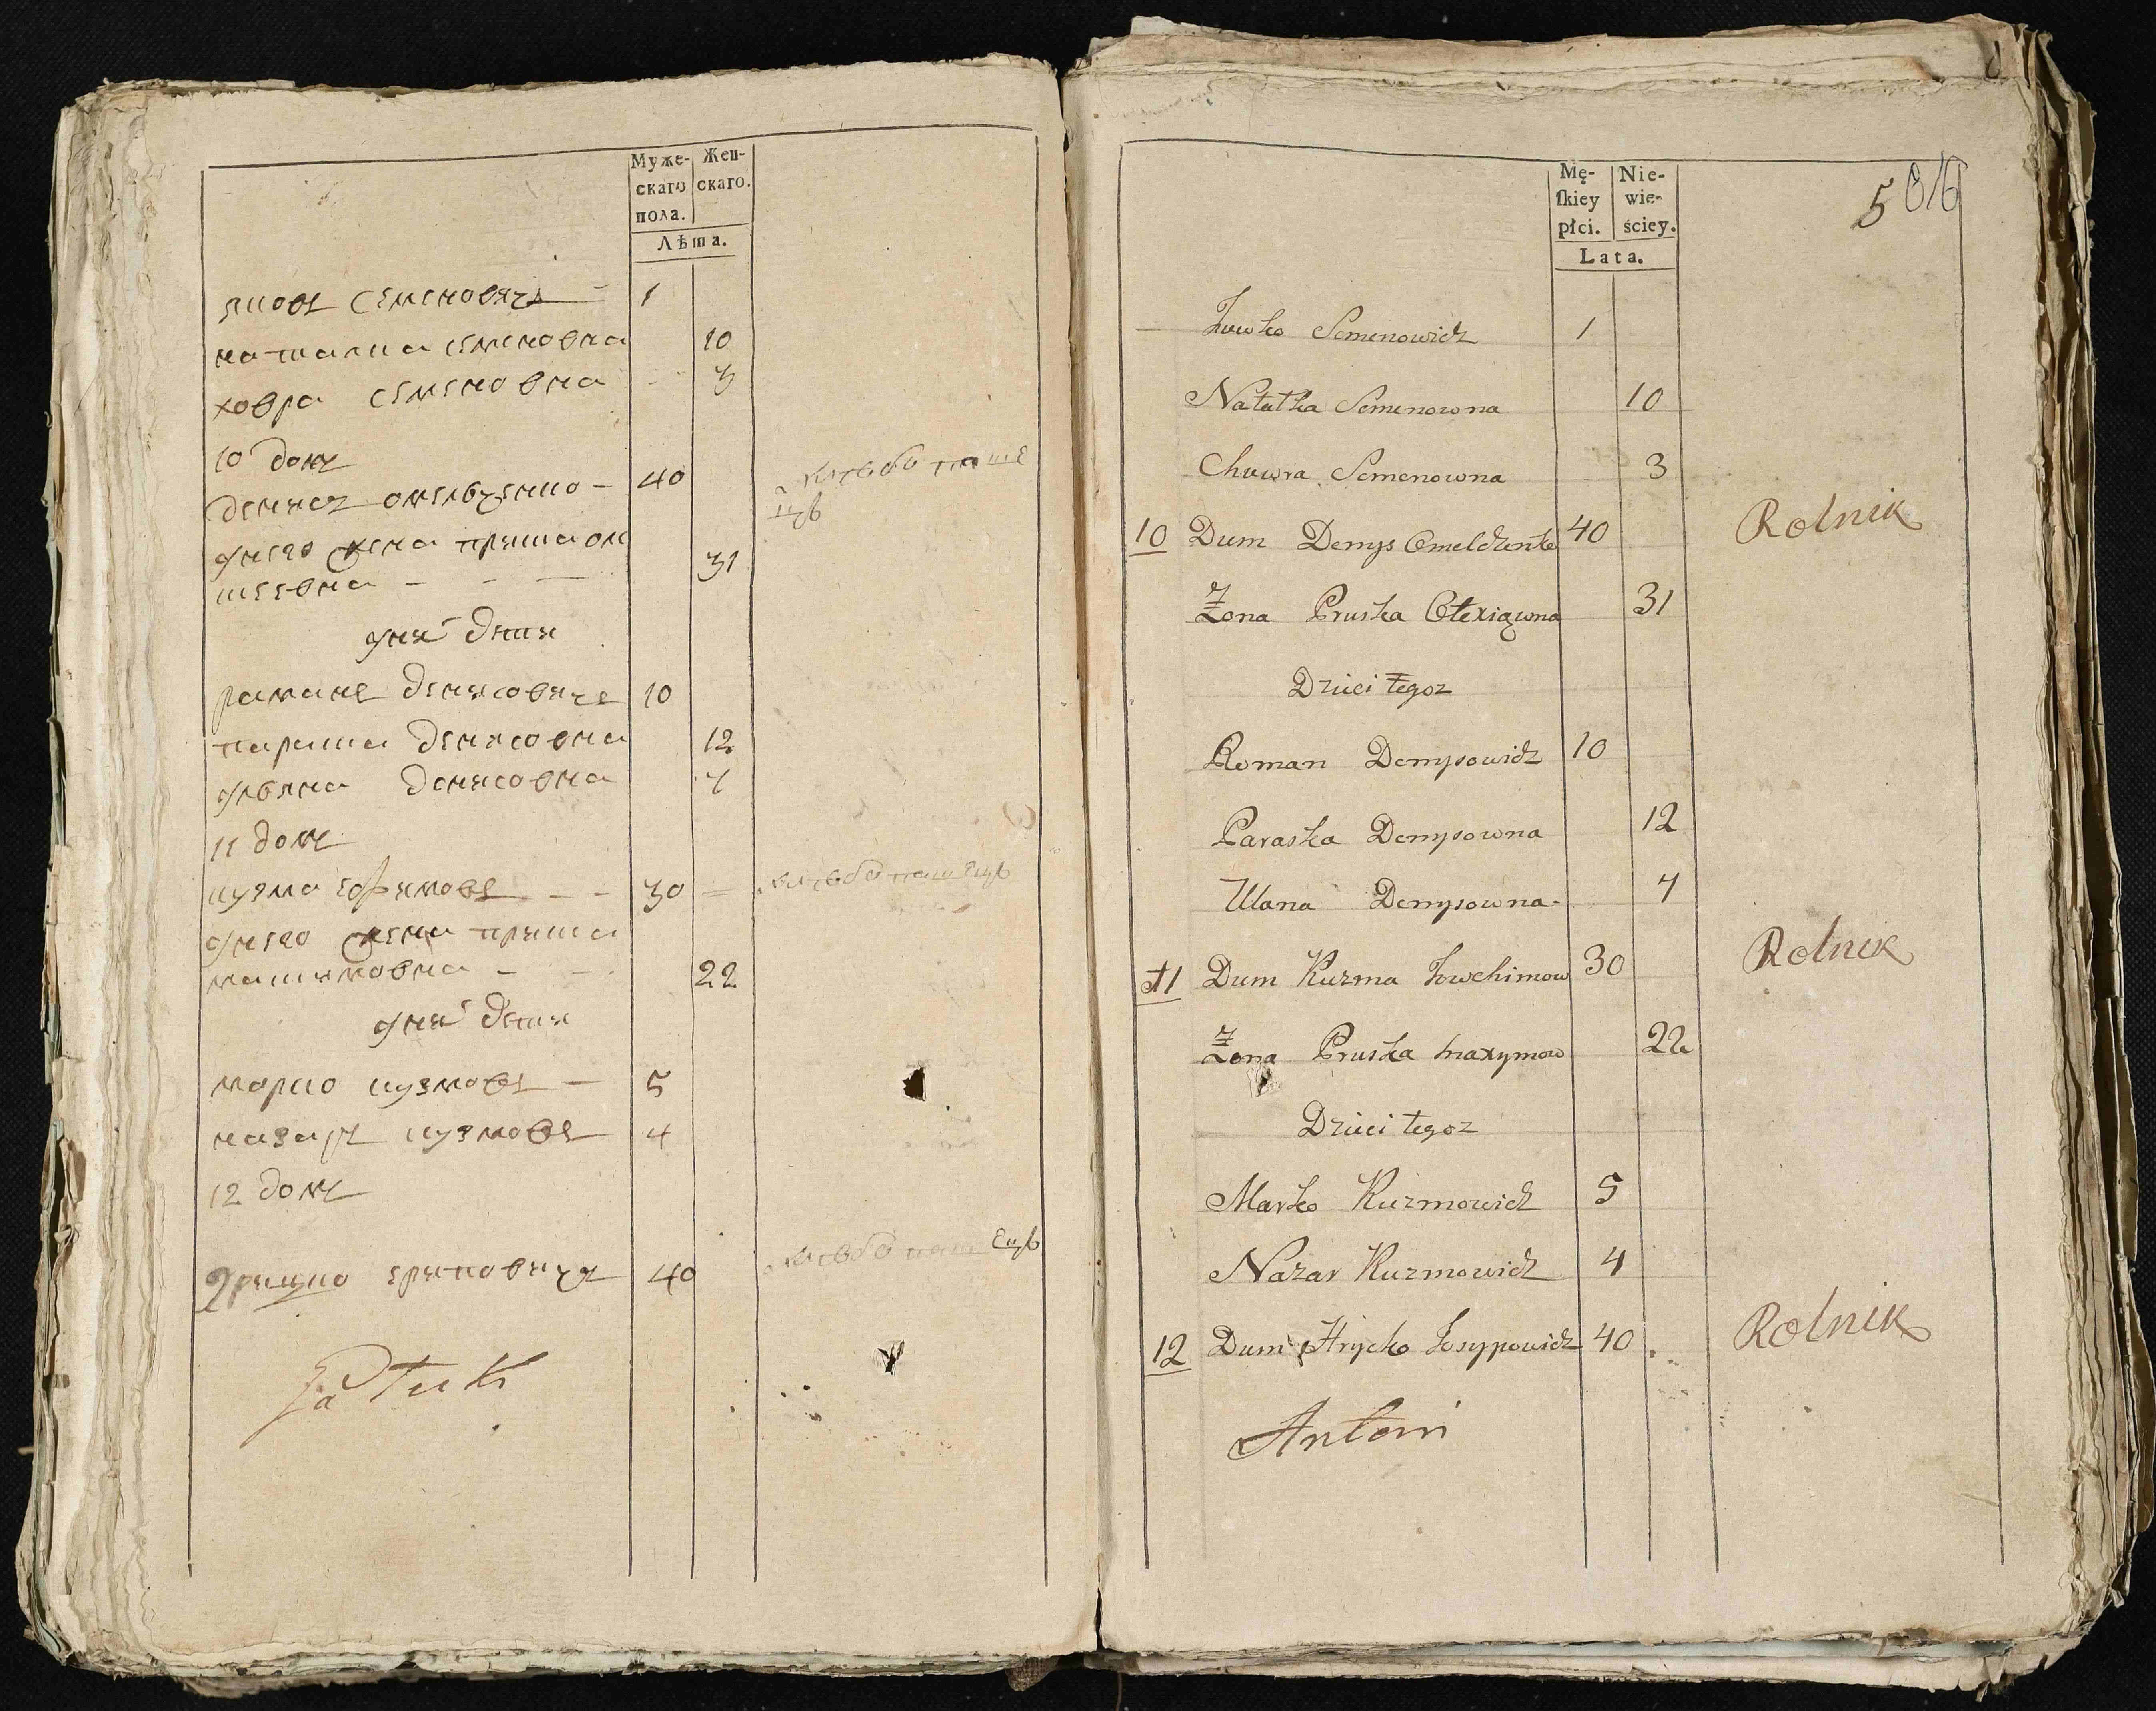 Муже-
скаго
пола.
Жен-
скаго.
Лѣта.
яковъ семеновичъ 1
наталка семеновна 10
ховра семеновна 3
10 домъ
денисъ омельченко 40 хлѣбопаше
цъ
унего жена приска оле
шеевна 31
унихъ дети
романъ денисовичъ 10
параска денисовна 12
ульяна денисовна 7
11 домъ
кузма ефимовъ 30 хлѣбопашецъ
унего жена приска
максимовна 22
унихъ дети
марко кузмовъ 5
назаръ кузмовъ 4
12 домъ
Грицко ериповичъ 40 хлѣбопашецъ
Mę-
ſkiey
płci.
Nie-
wie-
ściey.
Lata.
5 616
Jwko Semenowicz 1
Natałka Semenowna 10
Chuwra Semenowna 3
10 Dum Demys Omelczenko 40 Rolnik
Żona Pruska Ołexiąwna 31
Dzieci tegoz
Roman Demysowicz 10
Paraska Demysowna 12
Ulana Demysowna 7
11 Dum Kuzma Jowchimow 30 Rolnik
Żona Pruska Maxymow 22
Dzieci tegoz
Marko Kuzmowicz 5
Nazar Kuzmowicz 4
12 Dum Hrycko Josypowicz 40 Rolnik
Antoni